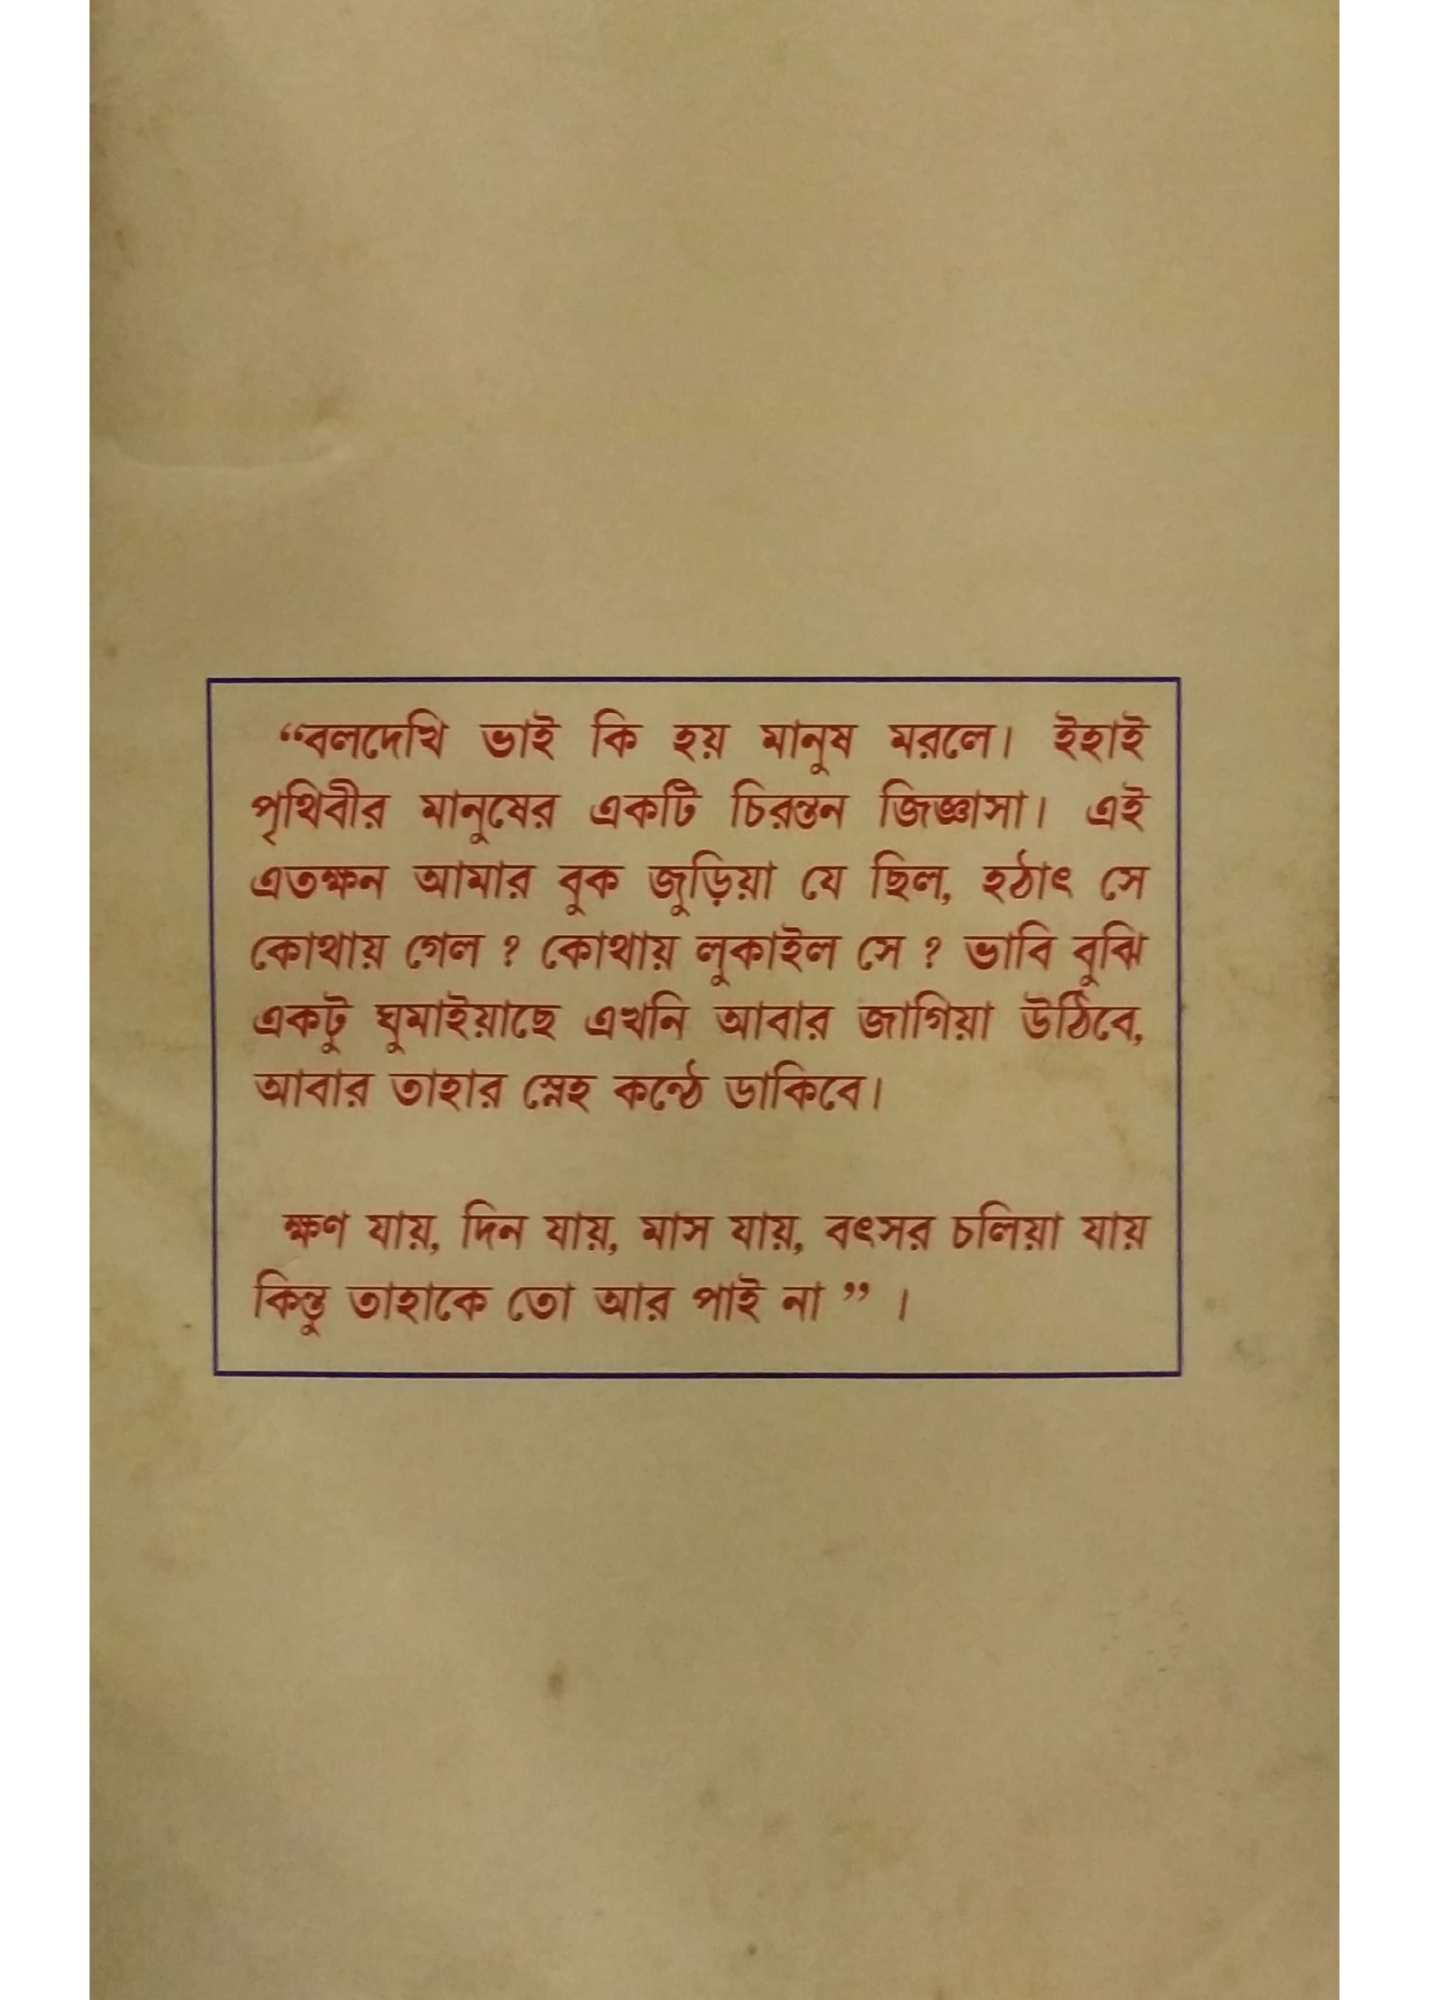 “বলদেখি ভাই কি হয় মানুষ মরলে। ইহাই
পৃথিবীর মানুষের একটি চিরন্তন জিজ্ঞাসা। এই
এতক্ষন আমার বুক জুড়িয়া যে ছিল, হঠাৎ সে
কোথায় গেল ? কোথায় লুকাইল সে ? ভাবি বুঝি
একটু ঘুমাইয়াছে এখনি আবার জাগিয়া উঠিবে,
আবার তাহার স্নেহ কন্ঠে ডাকিবে।
ক্ষণ যায়, দিন যায়, মাস যায়, বৎসর চলিয়া যায়
কিন্তু তাহাকে তো আর পাই না ” ।